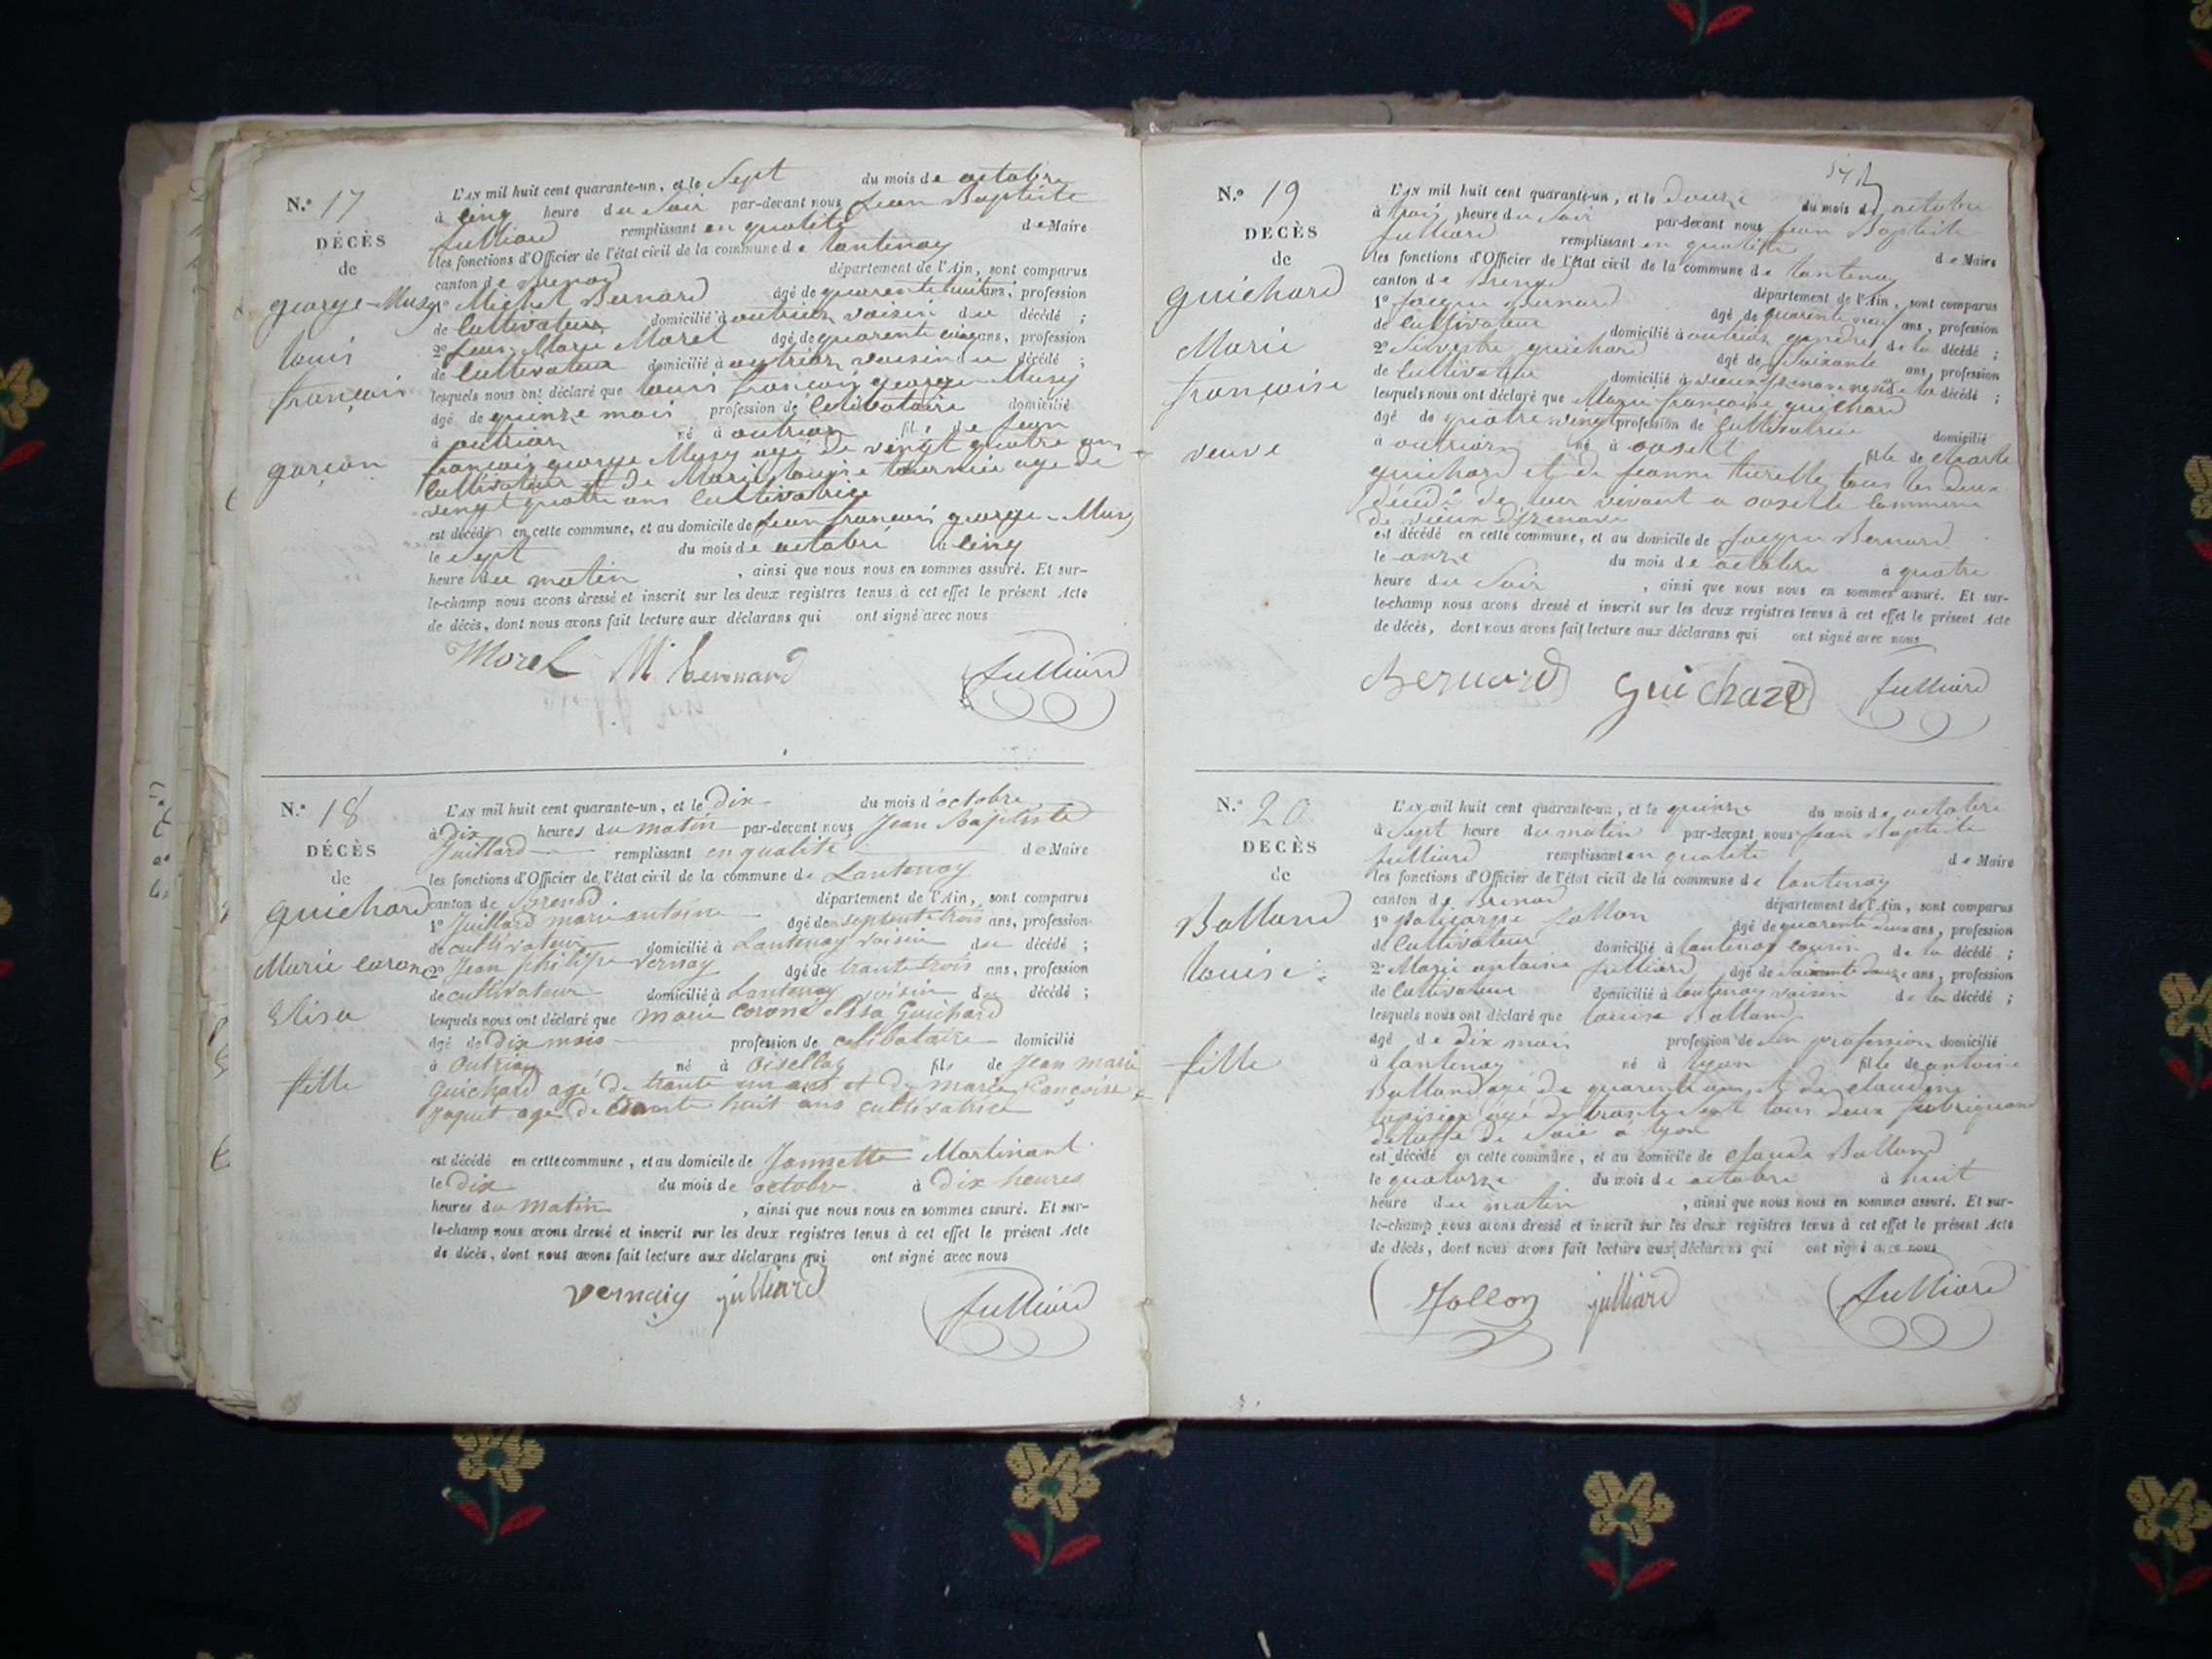 N.º 17
DÉCÈS
de
george-Musy
louis
françois
garçon
L'AN mil huit cent quarante-un, et le Sept du mois de octobre
à cinq heure du Soir par-devant nous Jean Baptiste
Julliard remplissant en qualité de Maire
les fonctions d'Officier de l'état civil de la commune de lantenay
canton de Brenod département de l'Ain, sont comparus
1º Michel Bernard âgé de quarente huit ans, profession
de Cultivateur domicilié à outriaz voisin du décédé ;
2º Jean Marie Morel âgé de quarente cinq ans, profession
de Cultivateur domicilié à outriaz voisin du décédé ;
lesquels nous ont déclaré que louis françois george-Musy
âgé de quinze mois profession de Célibataire domicilié
à outriaz né à outriaz fils de Jean
françois george Musy agé de vingt quatre ans
Cultivateur et de Marie louise agé de
vingt quatre ans Cultivatrice
est décédé en cette commune, et au domicile de Jean françois george-Musy
le Sept du mois de octobre à cinq
heure du matin , ainsi que nous nous en sommes assuré. Et sur-
le-champ nous avons dressé et inscrit sur les deux registres tenus à cet effet le présent Acte
de décès, dont nous avons fait lecture aux déclarans qui ont signé avec nous
Morel M Bernard Julliard
N.º 18
DÉCÈS
de
guichard
Marie corone
Elisa
fille
L'AN mil huit cent quarante-un, et le Dix du mois d'octobre
à Dix heures du matin par-devant nous Jean Baptiste
Juillard remplissant en qualité de Maire
les fonctions d'Officier de l'état civil de la commune de Lantenay
canton de Brenod département de l'Ain, sont comparus
1º Juillard marie antoine âgé de septente trois ans, profession
de cultivateur domicilié à Lantenay voisin du décédé ;
2º Jean philipe vernay âgé de trante trois ans, profession
de cultivateur domicilié à Lantenay voisin du décédé ;
lesquels nous ont déclaré que marie coroné elisa Guichard
âgé de Dix mois profession de célibataire domicilié
à Outriaz né à Oisellaz fils de Jean marie
Guichard agé de trante un ans et de marie francoise
Joquet age de trante huit ans cultivatrice
est décédé en cette commune, et au domicile de Jannette Martinant
le Dix du mois de octobre à Dix heures
heures du Matin , ainsi que nous nous en sommes assuré. Et sur-
le-champ nous avons dressé et inscrit sur les deux registres tenus à cet effet le présent Acte
de décès, dont nous avons fait lecture aux déclarans qui ont signé avec nous
vernaiy julliard Julliard
N.º 19
DÉCÈS
de
guichard
Marie
françoise
veuve
L'AN mil huit cent quarante-un, et le Douze du mois de octobre
à trois heure du Soir par-devant nous Jean Baptiste
Julliard remplissant en qualité de Maire
les fonctions d'Officier de l'état civil de la commune de lantenay
canton de Brenod département de l'Ain, sont comparus
1º Jacque Bernard âgé de quarente neuf ans, profession
de Cultivateur domicilié à outriaz gendre de la décédé ;
2º Silvestre guichard âgé de Soixante ans, profession
de Cultivateur domicilié à de la décédé ;
lesquels nous ont déclaré que Marie françoise guichard
âgé de quatre vingt profession de Cultivatrice domicilié
à outriaz né à oiselle fille de Charle
guichard et de Jeanne turelle tous les deux
Décédé de leur vivant a oiselle Commune
de vieux Dizenave
est décédé en cette commune, et au domicile de Jacque Bernard
le onze du mois de octobre à quatre
heure du Soir , ainsi que nous nous en sommes assuré. Et sur-
le-champ nous avons dressé et inscrit sur les deux registres tenus à cet effet le présent Acte
de décès, dont nous avons fait lecture aux déclarans qui ont signé avec nous
Bernard Guichard Julliard
N.º 20
DÉCÈS
de
Balland
louise
fille
L'AN mil huit cent quarante-un, et le quinze du mois de octobre
à Sept heure du matin par-devant nous Jean Baptiste
Julliard remplissant en qualité de Maire
les fonctions d'Officier de l'état civil de la commune de lantenay
canton de Brenod département de l'Ain, sont comparus
1º policarpe Jollon âgé de quarente deux ans, profession
de Cultivateur domicilié à lantenay cousin de la décédé ;
2º Marie antoine Julliard âgé de Soixante Douze ans, profession
de Cultivateur domicilié à lantenay voisin de la décédé ;
lesquels nous ont déclaré que louise Balland
âgé de dix mois profession de Sen profession domicilié
à lantenay né à lyon fille de antoine
Balland agé de quarente ans et de claudine
agé de trante Sept tous deux fabriquant
detoffe de Soie a lyon
est décédé en cette commune, et au domicile de Claude Balland
le quatorze du mois de octobre à huit
heure du matin , ainsi que nous nous en sommes assuré. Et sur-
le-champ nous avons dressé et inscrit sur les deux registres tenus à cet effet le présent Acte
de décès, dont nous avons fait lecture aux déclarans qui ont signé avec nous
Jollon julliard Julliard